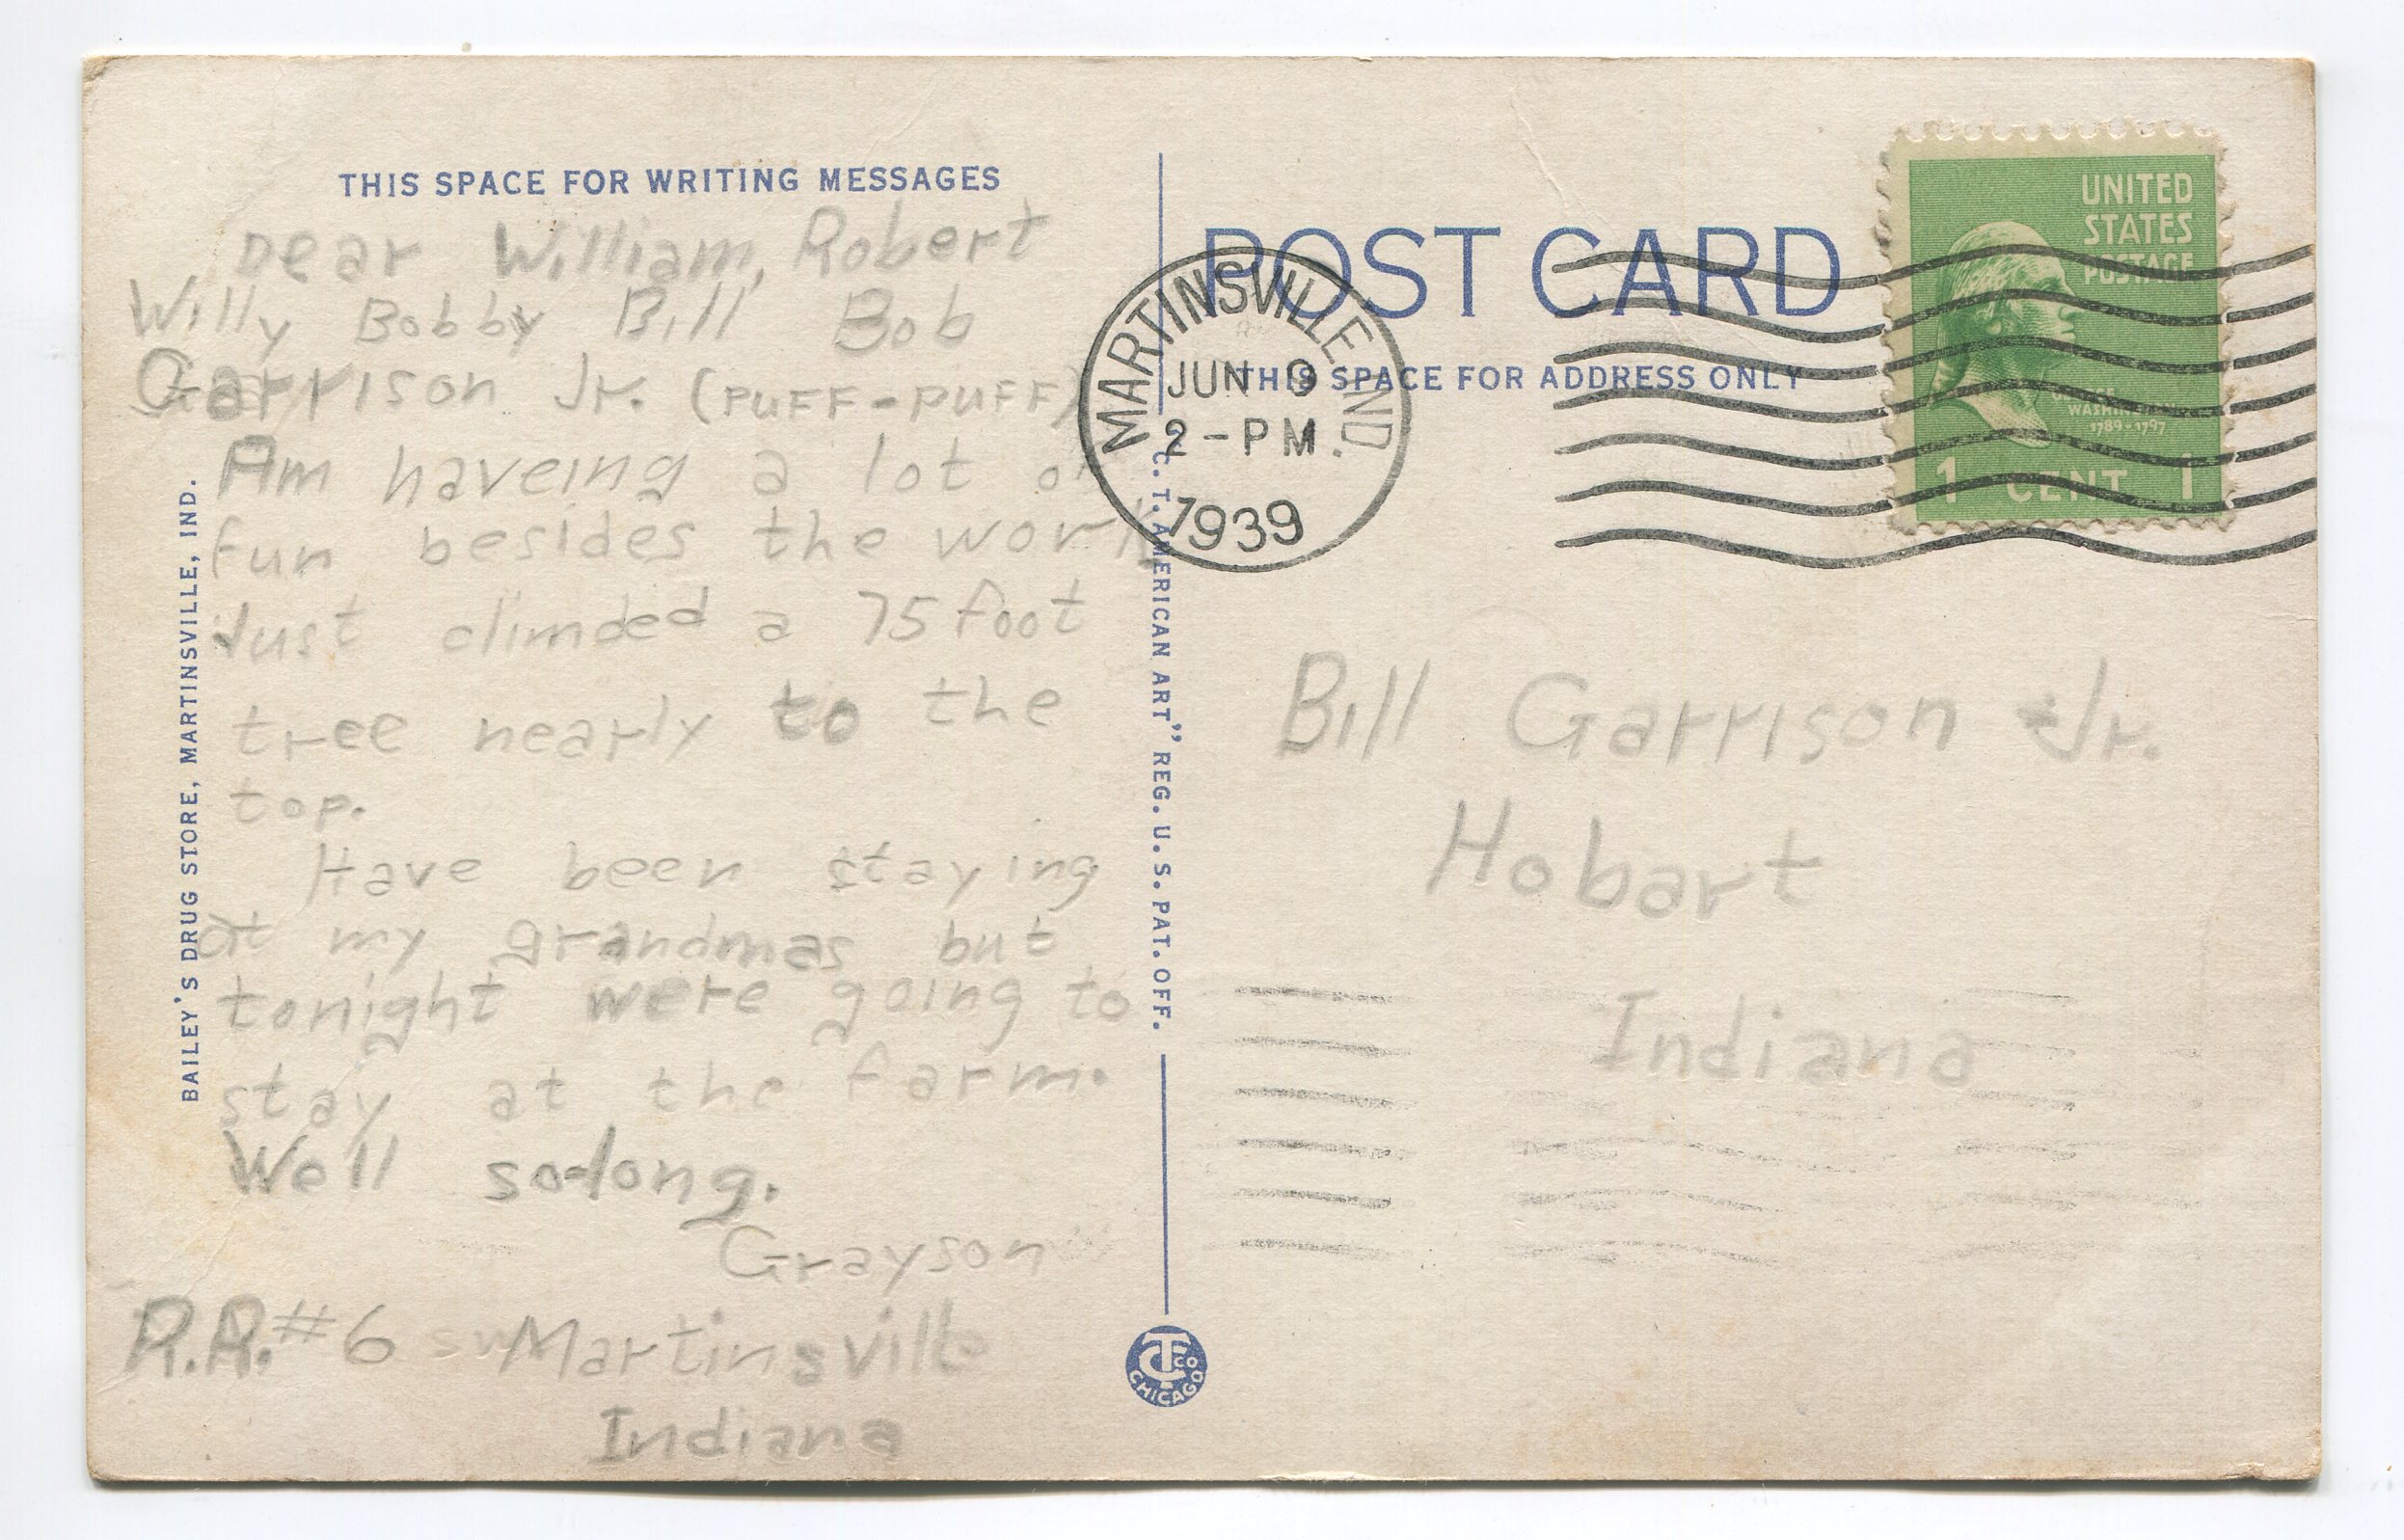 THIS SPACE FOR WRITING MESSAGES
Dear William, Robert
Willy Bobby Bill Bob
Garrison Jr. (PUFF-PUFF)
Am haveing a lot of
fun besides the work
Just climded a 75 foot
tree nearly to the
top.
Have been staying
at my grandmas but
tonight were going to
stay at the farm.
Well so-long.
Grayson
R.R.#6 Martinsville
Indiana
BAILEY'S DRUG STORE, MARTINSVILLE, IND.
C. T. AMERICAN ART" REG. U. S. PAT. OFF.
CT CO
CHICAGO
POST CARD
THIS SPACE FOR ADDRESS ONLY
MARTINSVILLE IND.
JUN 9
2-PM
1939
UNITED
STATES
POSTAGE
GEORGE
WASHINGTON
1789-1797
1 CENT 1
Bill Garrison Jr.
Hobart
Indiana